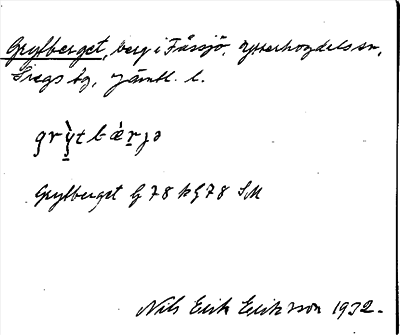 Grytberget, berg i Fåssjö, Ytterhogdals sn,
Svegs tg, Jämtl. l.
grỳt bæ̀rjə
Grytberget G 78 k G 78 SM
Nils Erik Eriksson 1932.